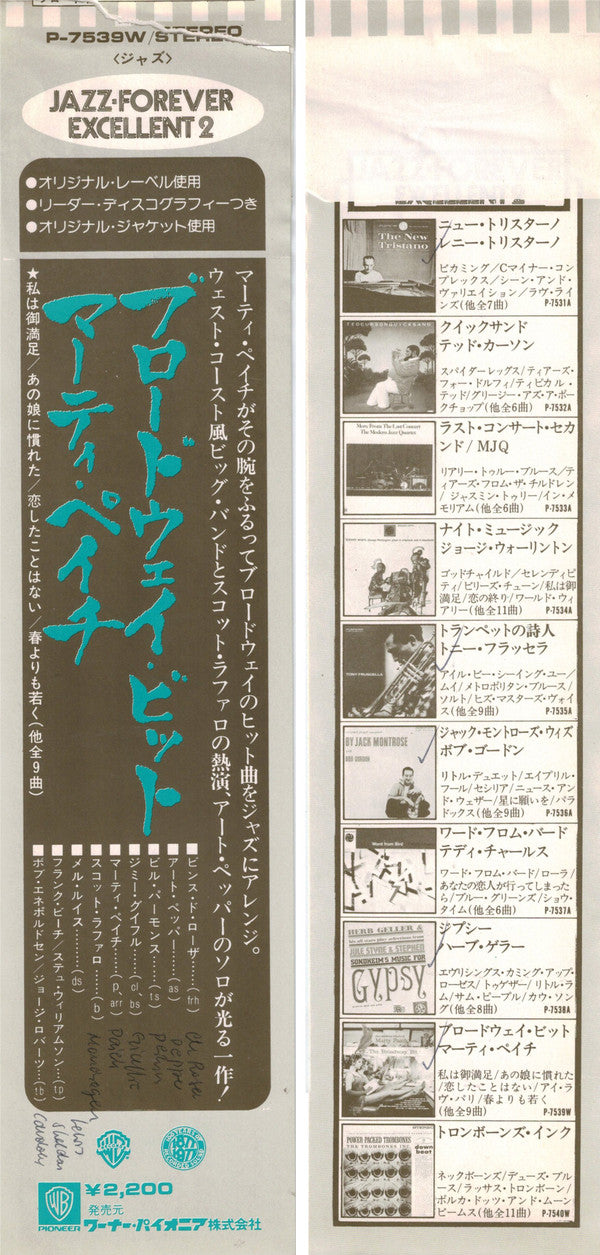 P-7539W/STEREO
〈ジャズ〉
JAZZ·FOREVER
EXCELLENT 2
●オリジナル・レーベル使用
●リーダー・ディスコグラフィーつき
●オリジナル・ジャケット使用
マーティ・ペイチがその腕をふるってブロードウェイのヒット曲をジャズにアレンジ。
ウェスト・コースト風ビッグ・バンドとスコット・ラファロの熱演、アート・ペッパーのソロが光る一作！
ブロードウェイ・ビット
マーティ・ペイチ
★私は御満足/あの娘に慣れた/恋したことはない/春よりも若く(他全9曲)
■ビンス・ド・ローザ……(frh)
■アート・ペッパー……(as)
■ビル・パーモンス……(ts)
■ジミー・グイフル……(cl bs)
■マーティ・ペイチ……(p, arr)
■スコット・ラファロ……(b)
■メル・ルイス……(ds)
■フランク・ビーチ/ステュ・ウィリアムソン…(tp)
■ボブ・エネボルドセン/ジョージ・ロバーツ…(tb)
De Rosa
Pepper
Giuffre
Paich
Lewis
Sheldon
WB
PIONEER
¥2,200
発売元
ワーナー・パイオニア株式会社
The New
Tristano
ニュー・トリスターノ
レニー・トリスターノ
ビカミング/Cマイナー・コン
プレックス/シーン・アンド・
ヴァリエイション/ラヴ・ライ
ンズ(他全7曲) P-7531A
TED CURSON QUICKSAND
クイックサンド
テッド・カーソン
スパイダーレッグス/ティアーズ・
フォー・ドルフィ/ティピカル・
テッド/グリージー・アズ・ア・ポー
クチョップ(他全6曲) P-7532A
More From The Last Concert
The Modern Jazz Quartet
ラスト・コンサート・セカ
ンド/MJQ
リアリー・トゥルー・ブルース/ティ
アーズ・フロム・ザ・チルドレン
/ジャスミン・トゥリー/イン・メ
モリアム(他全6曲) P-7533A
ナイト・ミュージック
ジョージ・ウォーリントン
ゴッドチャイルド/セレンディピ
ティ/ビリーズ・チューン/私は御
満足/恋の終り/ワールド・ウィ
アリー(他全11曲) P-7534A
TONY FRUSCELLA
トランペットの詩人
トニー・フラッセラ
アイル・ビー・シーイング・ユー/
ムイ/メトロポリタン・ブルース/
ソルト/ヒズ・マスターズ・ヴォイ
ス(他全9曲) P-7535A
BY JACK MONTROSE
BOB GORDON
ジャック・モントローズ・ウィズ
ボブ・ゴードン
リトル・デュエット/エイプリル・
フール/セシリア/ニュース・アン
ド・ウェザー/星に願いを/パラ
ドックス(他全9曲) P-7536A
Word from Bird
ワード・フロム・バード
テディ・チャールス
ワード・フロム・バード/ローラ/
あなたの恋人が行ってしまった
ら/ブルー・グリーンズ/ショウ・
タイム(他全6曲) P-7537A
HERB GELLER &
his all stars play selections from
JULE STYNE & STEPHEN
SONDHEIM'S MUSIC FOR
GYPSY
ジプシー
ハーブ・ゲラー
エヴリシングス・カミング・アップ・
ローゼス/トゥゲザー/リトル・ラ
ム/サム・ピープル/カウ・ソン
グ(他全8曲) P-7538A
Marty Paich
The Broadway Bit
ブロードウェイ・ビット
マーティ・ペイチ
私は御満足/あの娘に慣れた
/恋したことはない/アイ・ラ
ヴ・パリ/春よりも若く
(他全9曲) P-7539W
POWER PACKED TROMBONES
THE TROMBONES INC.
down beat
トロンボーンズ・インク
ネックボーンズ/デューズ・ブル
ース/ラッサス・トロンボーン/
ポルカ・ドッツ・アンド・ムーン
ビームス(他全11曲) P-7540W